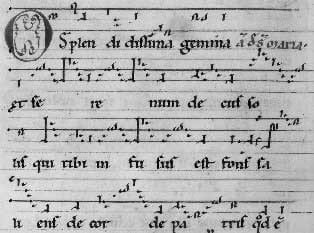 O Splen di dissima gemma a s͞c͞a maria.
et se re num de cus so
lis qui tibi in fu sus est fons sa
li ens de cor de pa tris q̊d ē